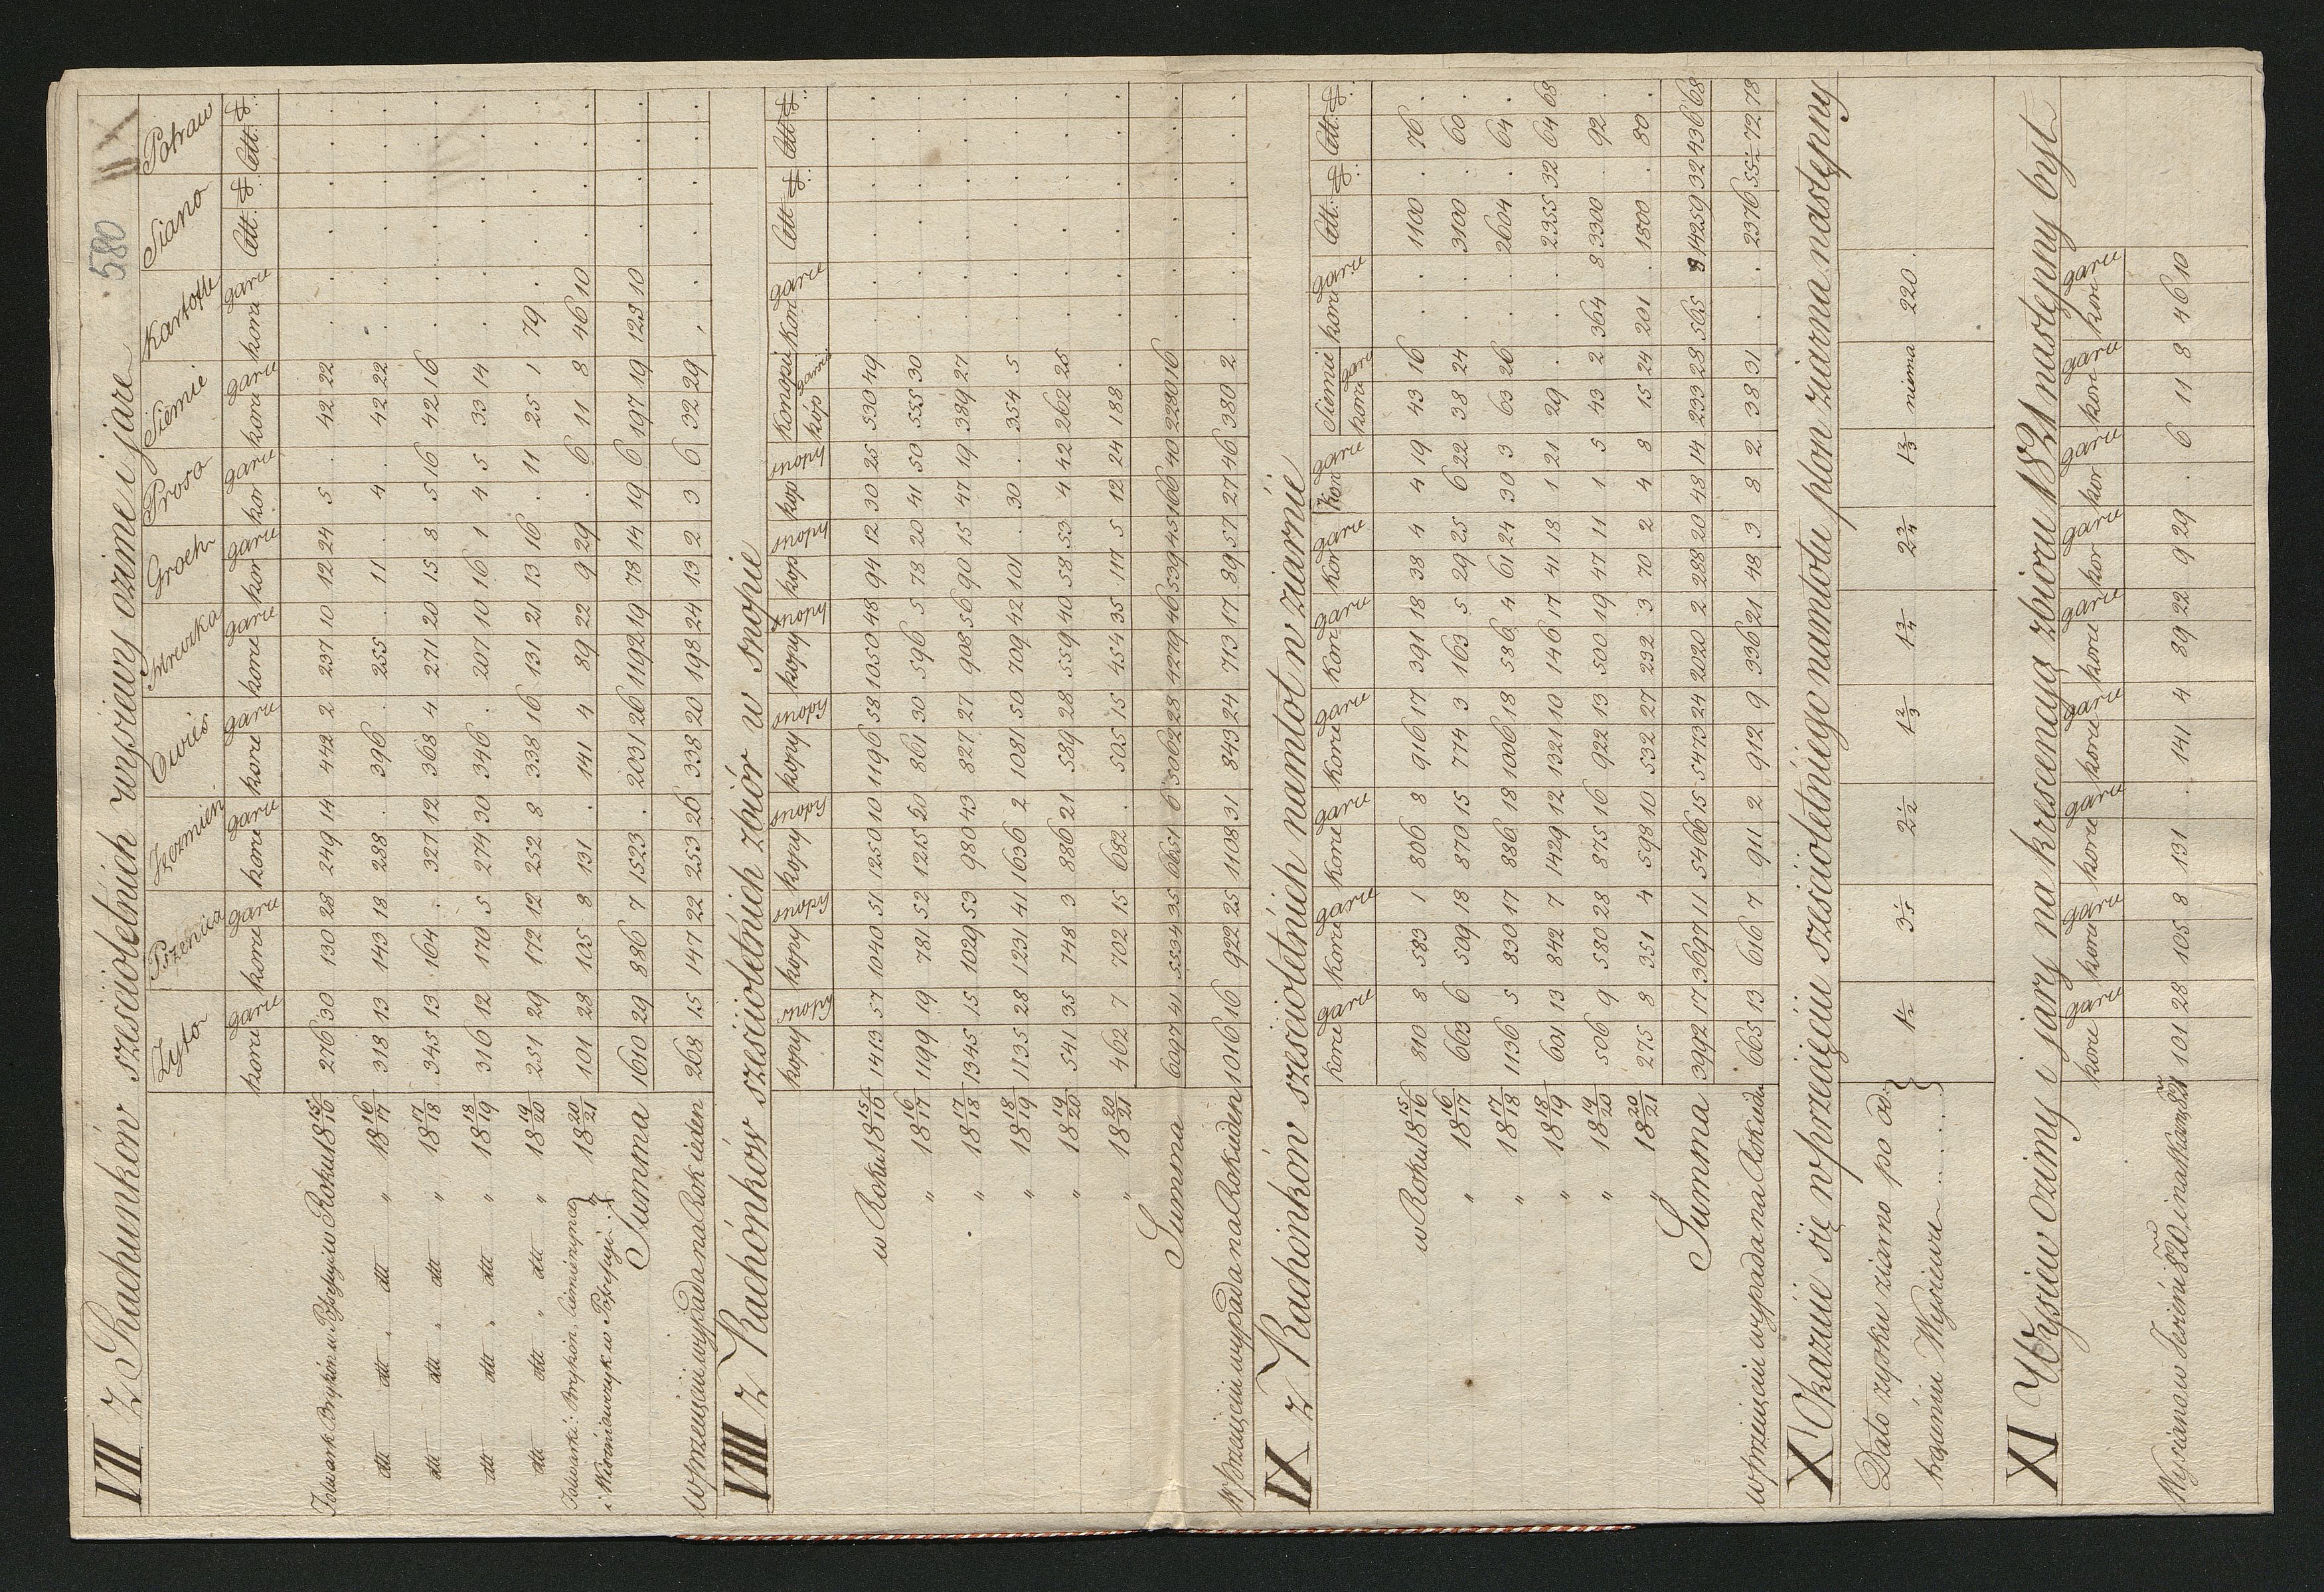 580
VII Z Rachunków sześcioletnich wysiewy ozime i jare
Żyto Pszenica Ięczmień Owies Hreczka Groch Proso Siemie Kartofle Siano Potraw
korce garce korce garce korce garce korce garce korce garce kor garce kor garce korc garce korce garce Cett. ℔. Cett. ℔.
Folwark Brykón w Possessyi w Roku 18 15/16 276 30 130 28 249 14 442 2 237 10 12 24 5 . 42 22 . . . . . .
dtt dtt „ dtt „ 18 16/17 318 13 143 18 288 . 396 . 255 . 11 . 4 . 42 22 . . . . . .
dtt dtt „ dtt „ 18 17/18 345 13 164 . 327 12 368 4 271 20 15 8 5 16 42 16 . . . . . .
dtt dtt „ dtt „ 18 18/19 316 12 170 5 274 30 346 . 207 10 16 1 4 5 33 14 . . . . . .
dtt dtt „ dtt „ 18 19/20 251 29 172 12 252 8 338 16 131 21 13 16 . 11 25 1 79 . . . . .
Folwarki: Brykón, Siemierzynce
i Wiśniowczyk w Possessyi . . 18 20/21 101 28 105 8 131 . 141 4 89 22 9 29 . 6 11 8 46 10 . . . .
Summa 1610 29 886 7 1523 . 2031 26 1192 19 78 14 19 6 197 19 125 10 . . . .
w przecięciu wypada na Rok ieden 268 15 147 22 253 26 338 20 198 24 13 2 3 6 32 29 . . . . . .
VIII Z Rachónków sześcioletnich zbiór w snopie
kopy snopy kopy snopy kopy snopy kopy snopy kopy snopy kop snopy kop snopy Konopi kóp garści kor garce Cett ℔: Cett ℔:
w Roku 18 15/16 1413 57 1040 51 1250 10 1196 58 1050 48 94 12 30 25 530 49 . . . . . .
„ 18 16/17 1199 19 781 52 1215 20 861 30 596 5 78 20 41 50 555 30 . . . . . .
„ 18 17/18 1345 15 1029 53 980 43 827 27 908 56 90 15 47 19 389 27 . . . . . .
„ 18 18/19 1135 28 1231 41 1636 2 1081 50 709 42 101 . 30 . 354 5 . . . . . .
„ 18 19/20 541 35 748 3 886 21 589 28 559 40 58 53 4 42 262 25 . . . . . .
„ 18 20/21 462 7 702 15 682 . 505 15 454 35 117 5 12 24 188 . . . . . . .
Summa 6097 41 5534 35 6651 6 5062 28 4279 46 539 45 166 40 2280 16 . . . . . .
w przecięciu wypada na Rok ieden 1016 16 922 25 1108 31 843 24 713 17 89 57 27 46 380 2 . . . . . .
IX z Rachónków sześcioletnich namłot w ziarnie
korce garce korce garce korce garce korce garce korce garce kor garce kor garce Siemie korce garc korce garce Cett: ℔: Cett: ℔:
w Roku 18 15/16 810 8 583 1 806 8 916 17 391 18 38 4 4 19 43 16 . . 1100 . 76 .
„ 18 16/17 663 6 509 18 870 15 774 3 163 5 29 25 6 22 38 24 . . 3100 . 60 .
„ 18 17/18 1136 5 830 17 886 18 1006 18 586 4 61 24 30 3 63 26 . . 2604 . 64 .
„ 18 18/19 601 13 842 7 1429 12 1321 10 146 17 41 18 1 21 29 . . . 2355 32 64 68
„ 18 19/20 506 9 580 28 875 16 922 13 500 19 47 11 1 5 43 2 364 8 3300 . 92 .
„ 18 20/21 275 8 351 4 598 10 532 27 232 3 70 2 4 8 15 24 201 . 1800 . 80 .
Summa 3992 17 3697 11 5466 15 5473 24 2020 2 288 20 48 14 233 28 565 8 14259 32 436 68
w przecięciu wypada na Rok ieden 665 13 616 7 911 2 912 9 336 21 48 3 8 2 38 31 . 2376 55 1/2 72 78
X Okazuie się w przecięciu sześcioletniego namłotu plon ziarna następny
Dało zysku ziarno po od-
trąceniu Wysiewu . . . . 1 1/2 3 1/5 2 1/2 1 2/3 1 3/4 2 3/4 1 2/3 niema 220 .
XI Wysiew ozimy i jary na krescencyą zbioru 1821 następny był
korce garce korce garce korce garce korce garce korce garce kor garce kor garce korc garce korce garce
Wysiano w Jesieni 820 i na Wiosnę 821 101 28 105 8 131 . 141 4 89 22 9 29 . 6 11 8 46 10